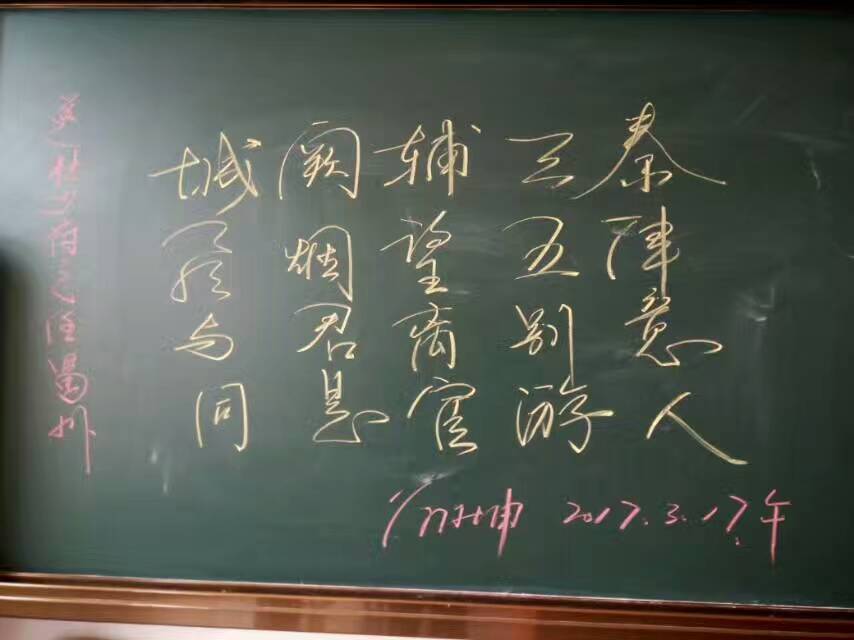 送杜少府之任蜀州
城阙辅三秦
风烟望五津
与君离别意
同是宦游人
坤 2017.3.17.午